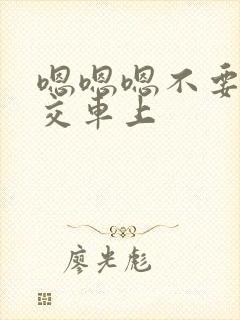 嗯嗯嗯不要
交车上
廖光彪